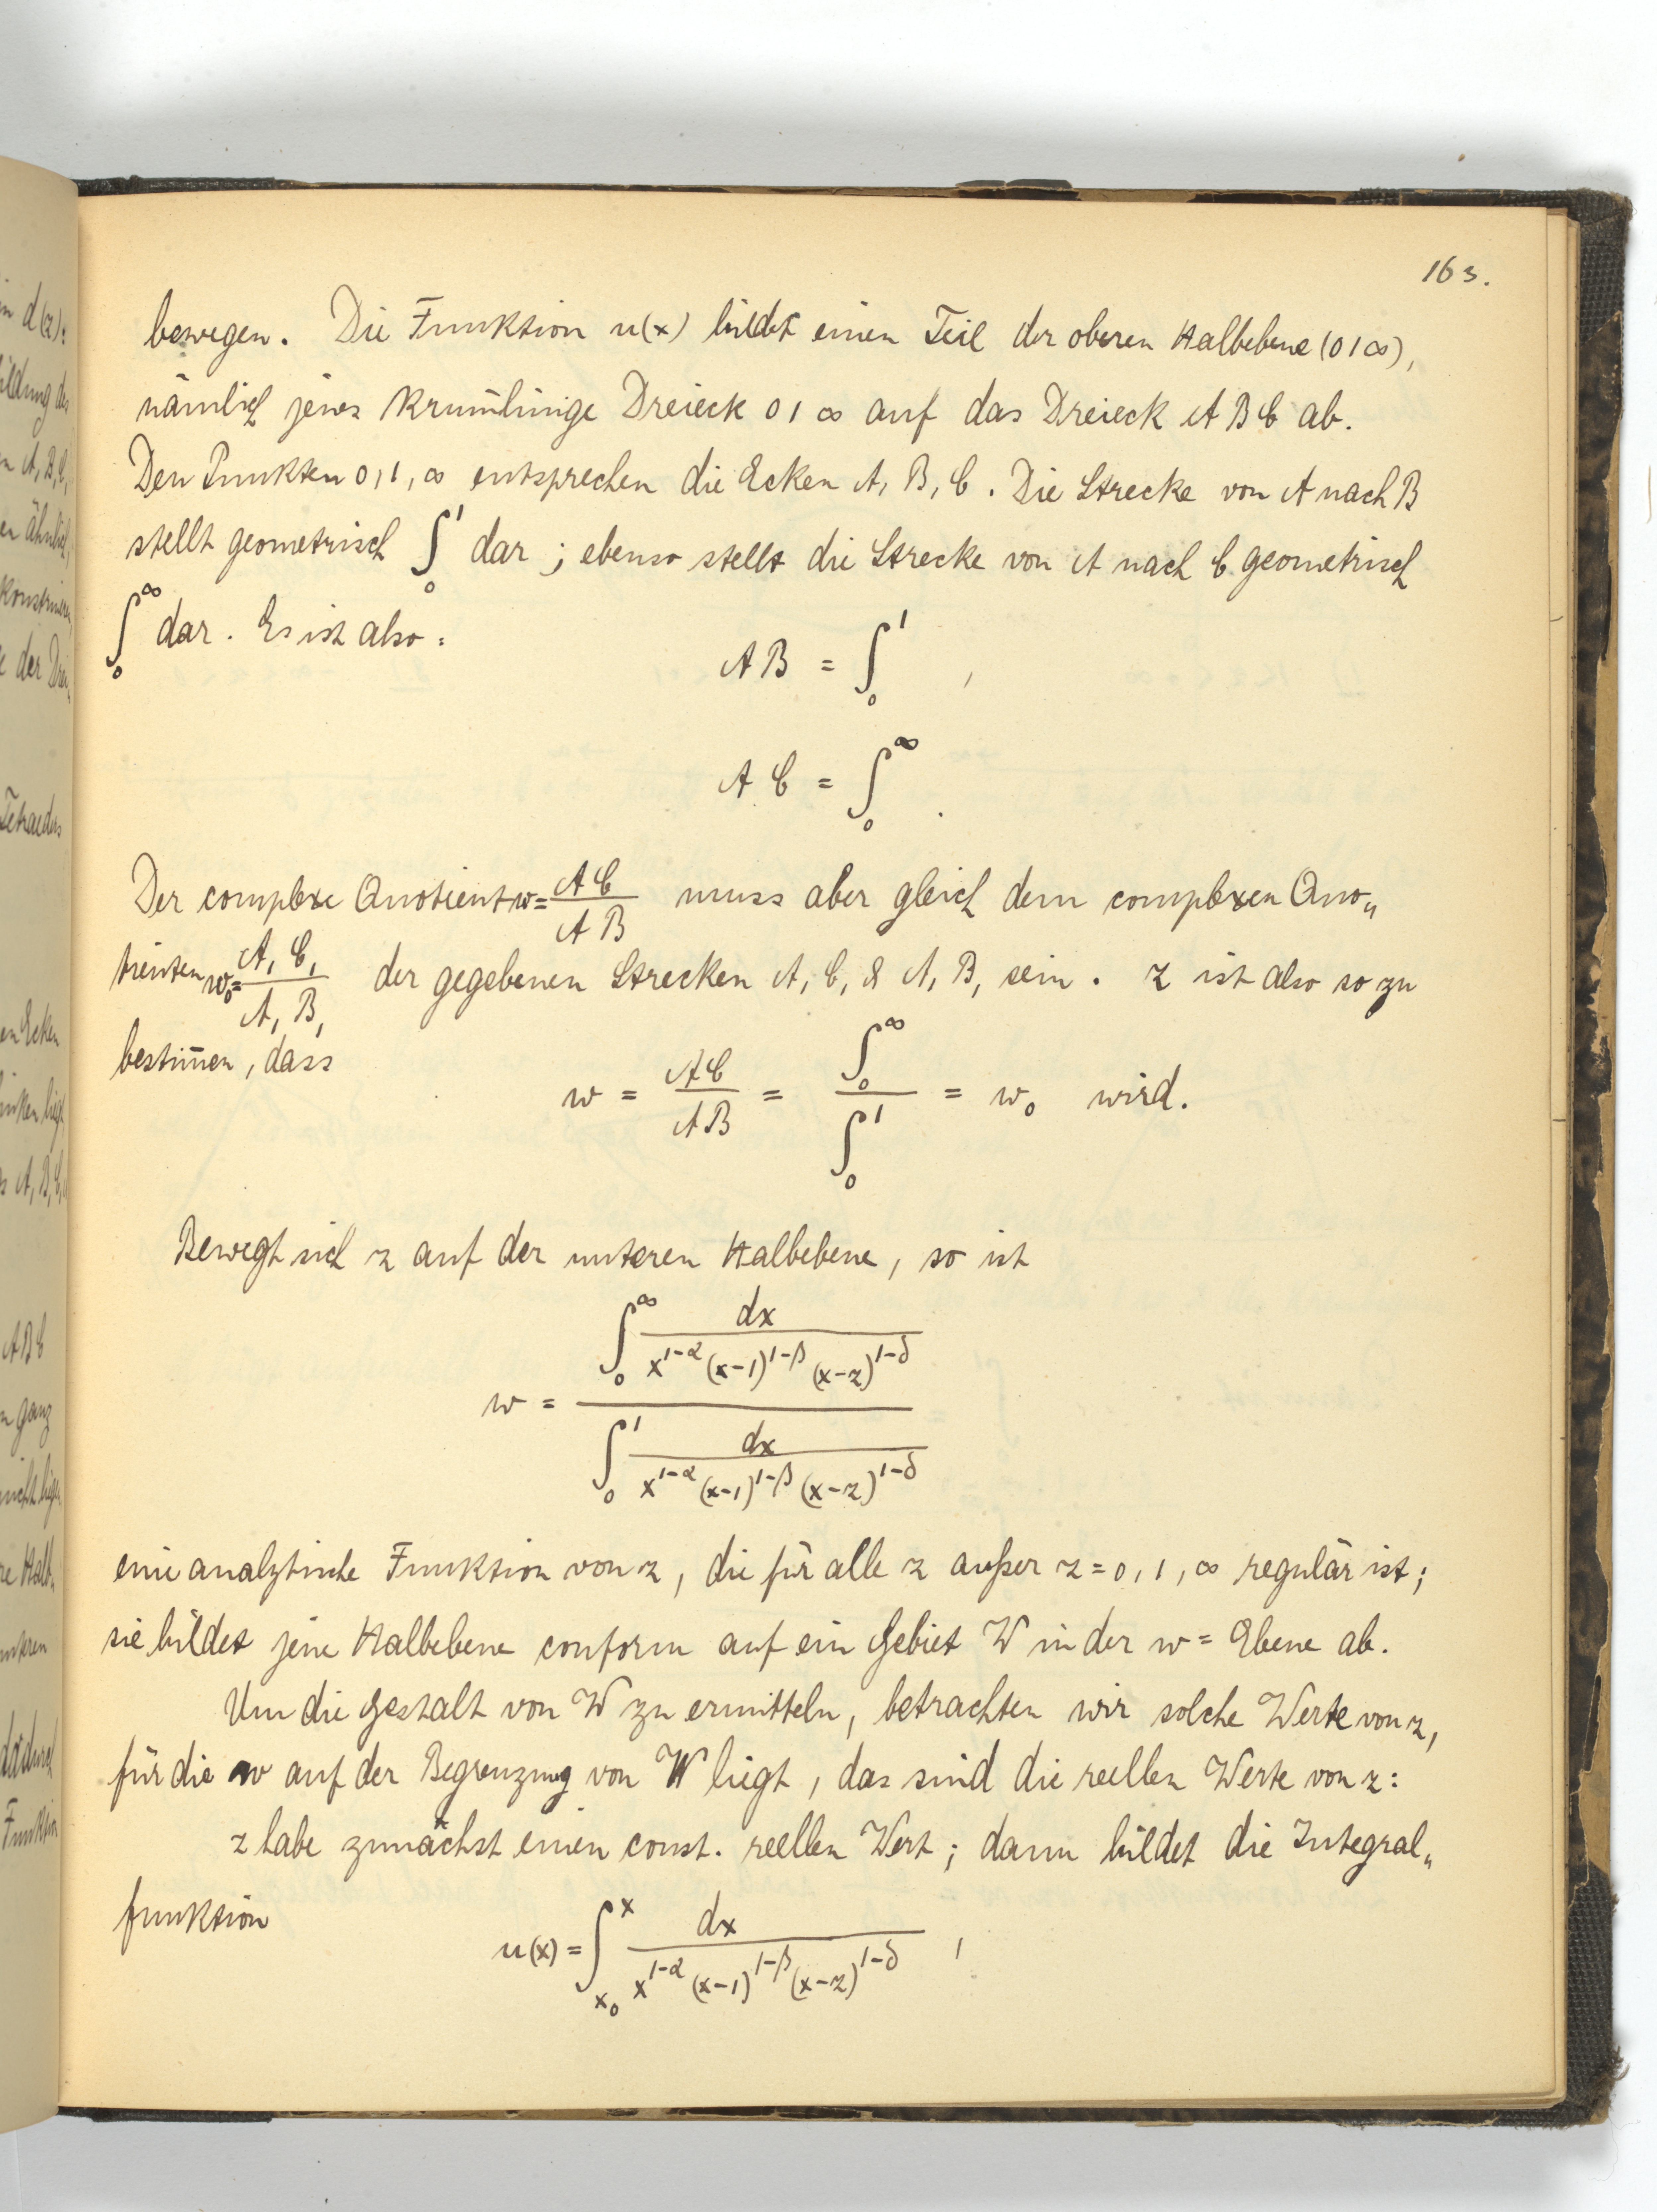 163.
bewegen. Die Funktion u(x) bildet einen Teil der oberen Halbebene (0 1 ∞),
nämlich jenes krummlinige Dreieck 0 1 ∞ auf das Dreieck A B C ab.
Den Punkten 0, 1, ∞ entsprechen die Ecken A, B, C. Die Strecke von A nach B
stellt geometrisch ∫₀¹ dar; ebenso stellt die Strecke von A nach C geometrisch
∫₀^∞ dar. Es ist also:
AB = ∫₀¹ ,
AC = ∫₀^∞ .
Der complexe Quotient w = AC/AB muss aber gleich dem complexen Quo„
tienten w₀ = A₁C₁/A₁B₁ der gegebenen Strecken A₁C₁ & A₁B₁ sein. z ist also so zu
bestim̄en, dass
w = AC/AB = ∫₀^∞ / ∫₀¹ = w₀ wird.
Bewegt sich z auf der unteren Halbebene, so ist
w = ∫₀^∞ dx/(x^{1-α}(x-1)^{1-β}(x-z)^{1-δ}) / ∫₀¹ dx/(x^{1-α}(x-1)^{1-β}(x-z)^{1-δ})
eine analytische Funktion von z, die für alle z außer z = 0, 1, ∞ regulär ist;
sie bildet jene Halbebene conform auf ein Gebiet W in der w = Ebene ab.
Um die Gestalt von W zu ermitteln, betrachten wir solche Werte von z,
für die w auf der Begrenzung von W liegt, das sind die reellen Werte von z:
z habe zunächst einen const. reellen Wert; dann bildet die Integral„
funktion
u(x) = ∫_{x₀}^{x} dx/(x^{1-α}(x-1)^{1-β}(x-z)^{1-δ}) ,